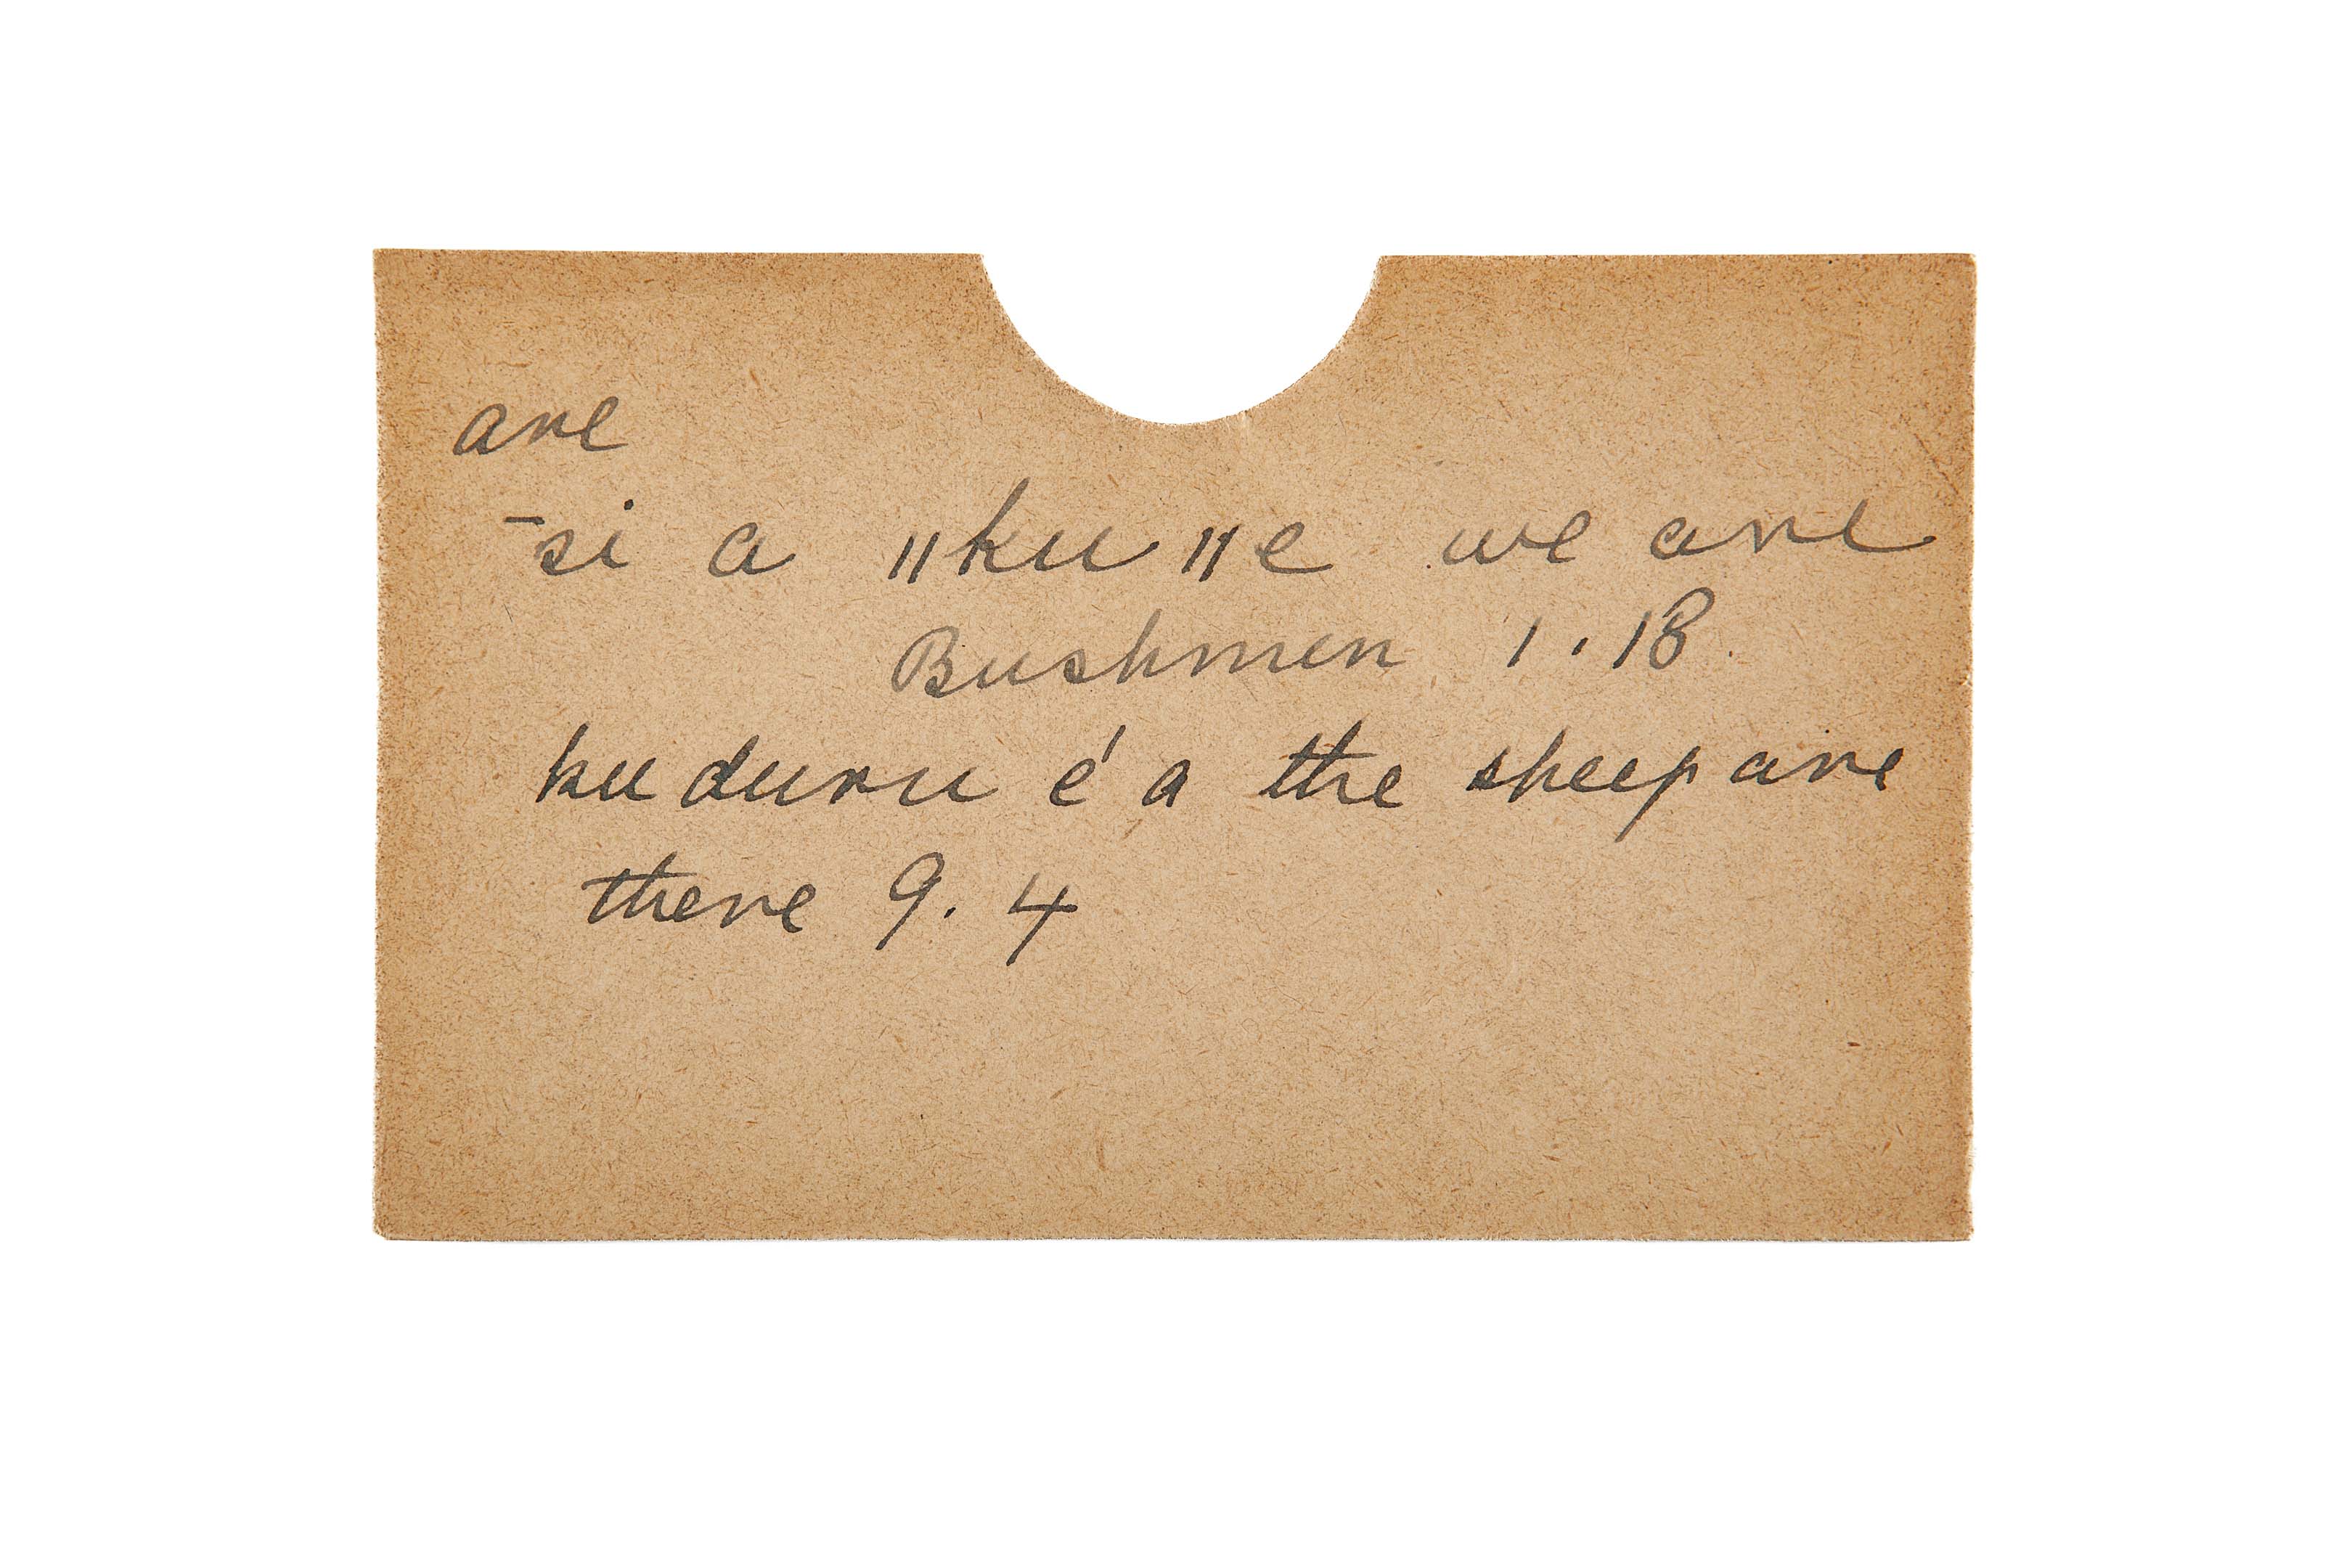 are
‾si a ǁkuǁe we are
Bushmen 1.18.
ku duru é a the sheep are
there 9. 4